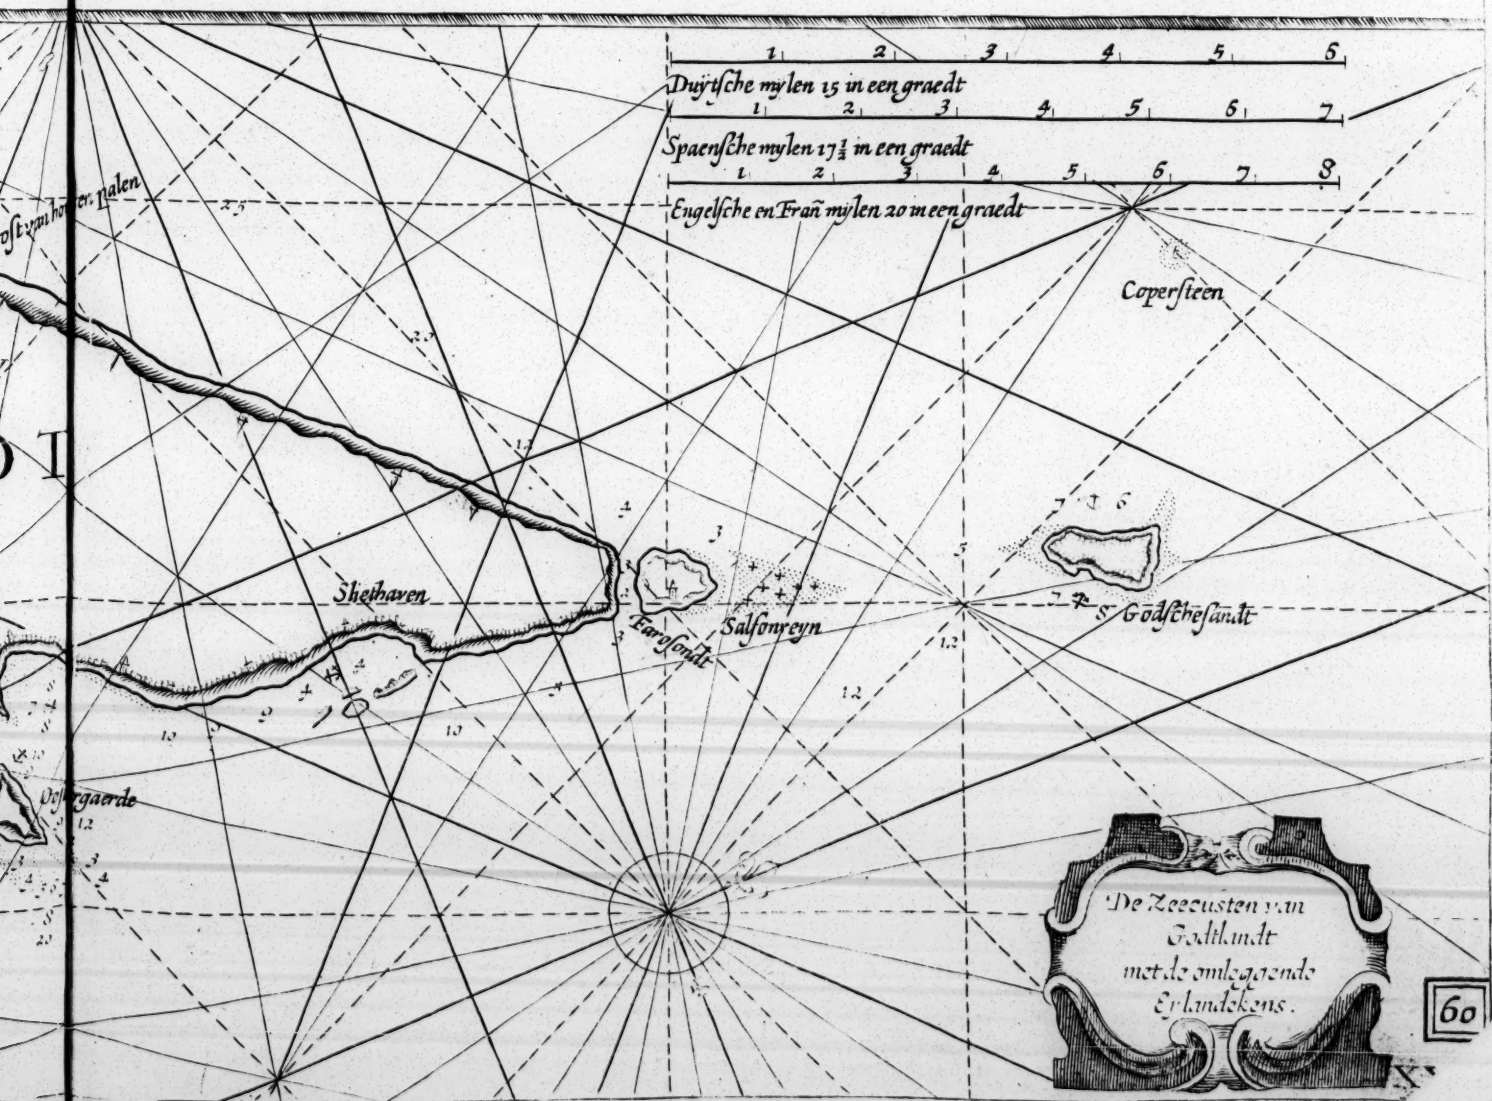 1 2 3 4 5 6
Duÿtſche mylen 15 in een graedt
1 2 3 4 5 6 7
Spaenſche mylen 17½ in een graedt
1 2 3 4 5 6 7 8
Engelſche en Frañ mylen 20 in een graedt
25
Coperſteen
OT
12
4
3
7 6
5
Shethaven
Faroſondt
Salſonreyn
7 8 Godſcheſandt
12
12
4
4
9
10
10
12
3
4
20
De Zeecusten van
Godtlandt
met de omleggende
Eylandekens.
60
X